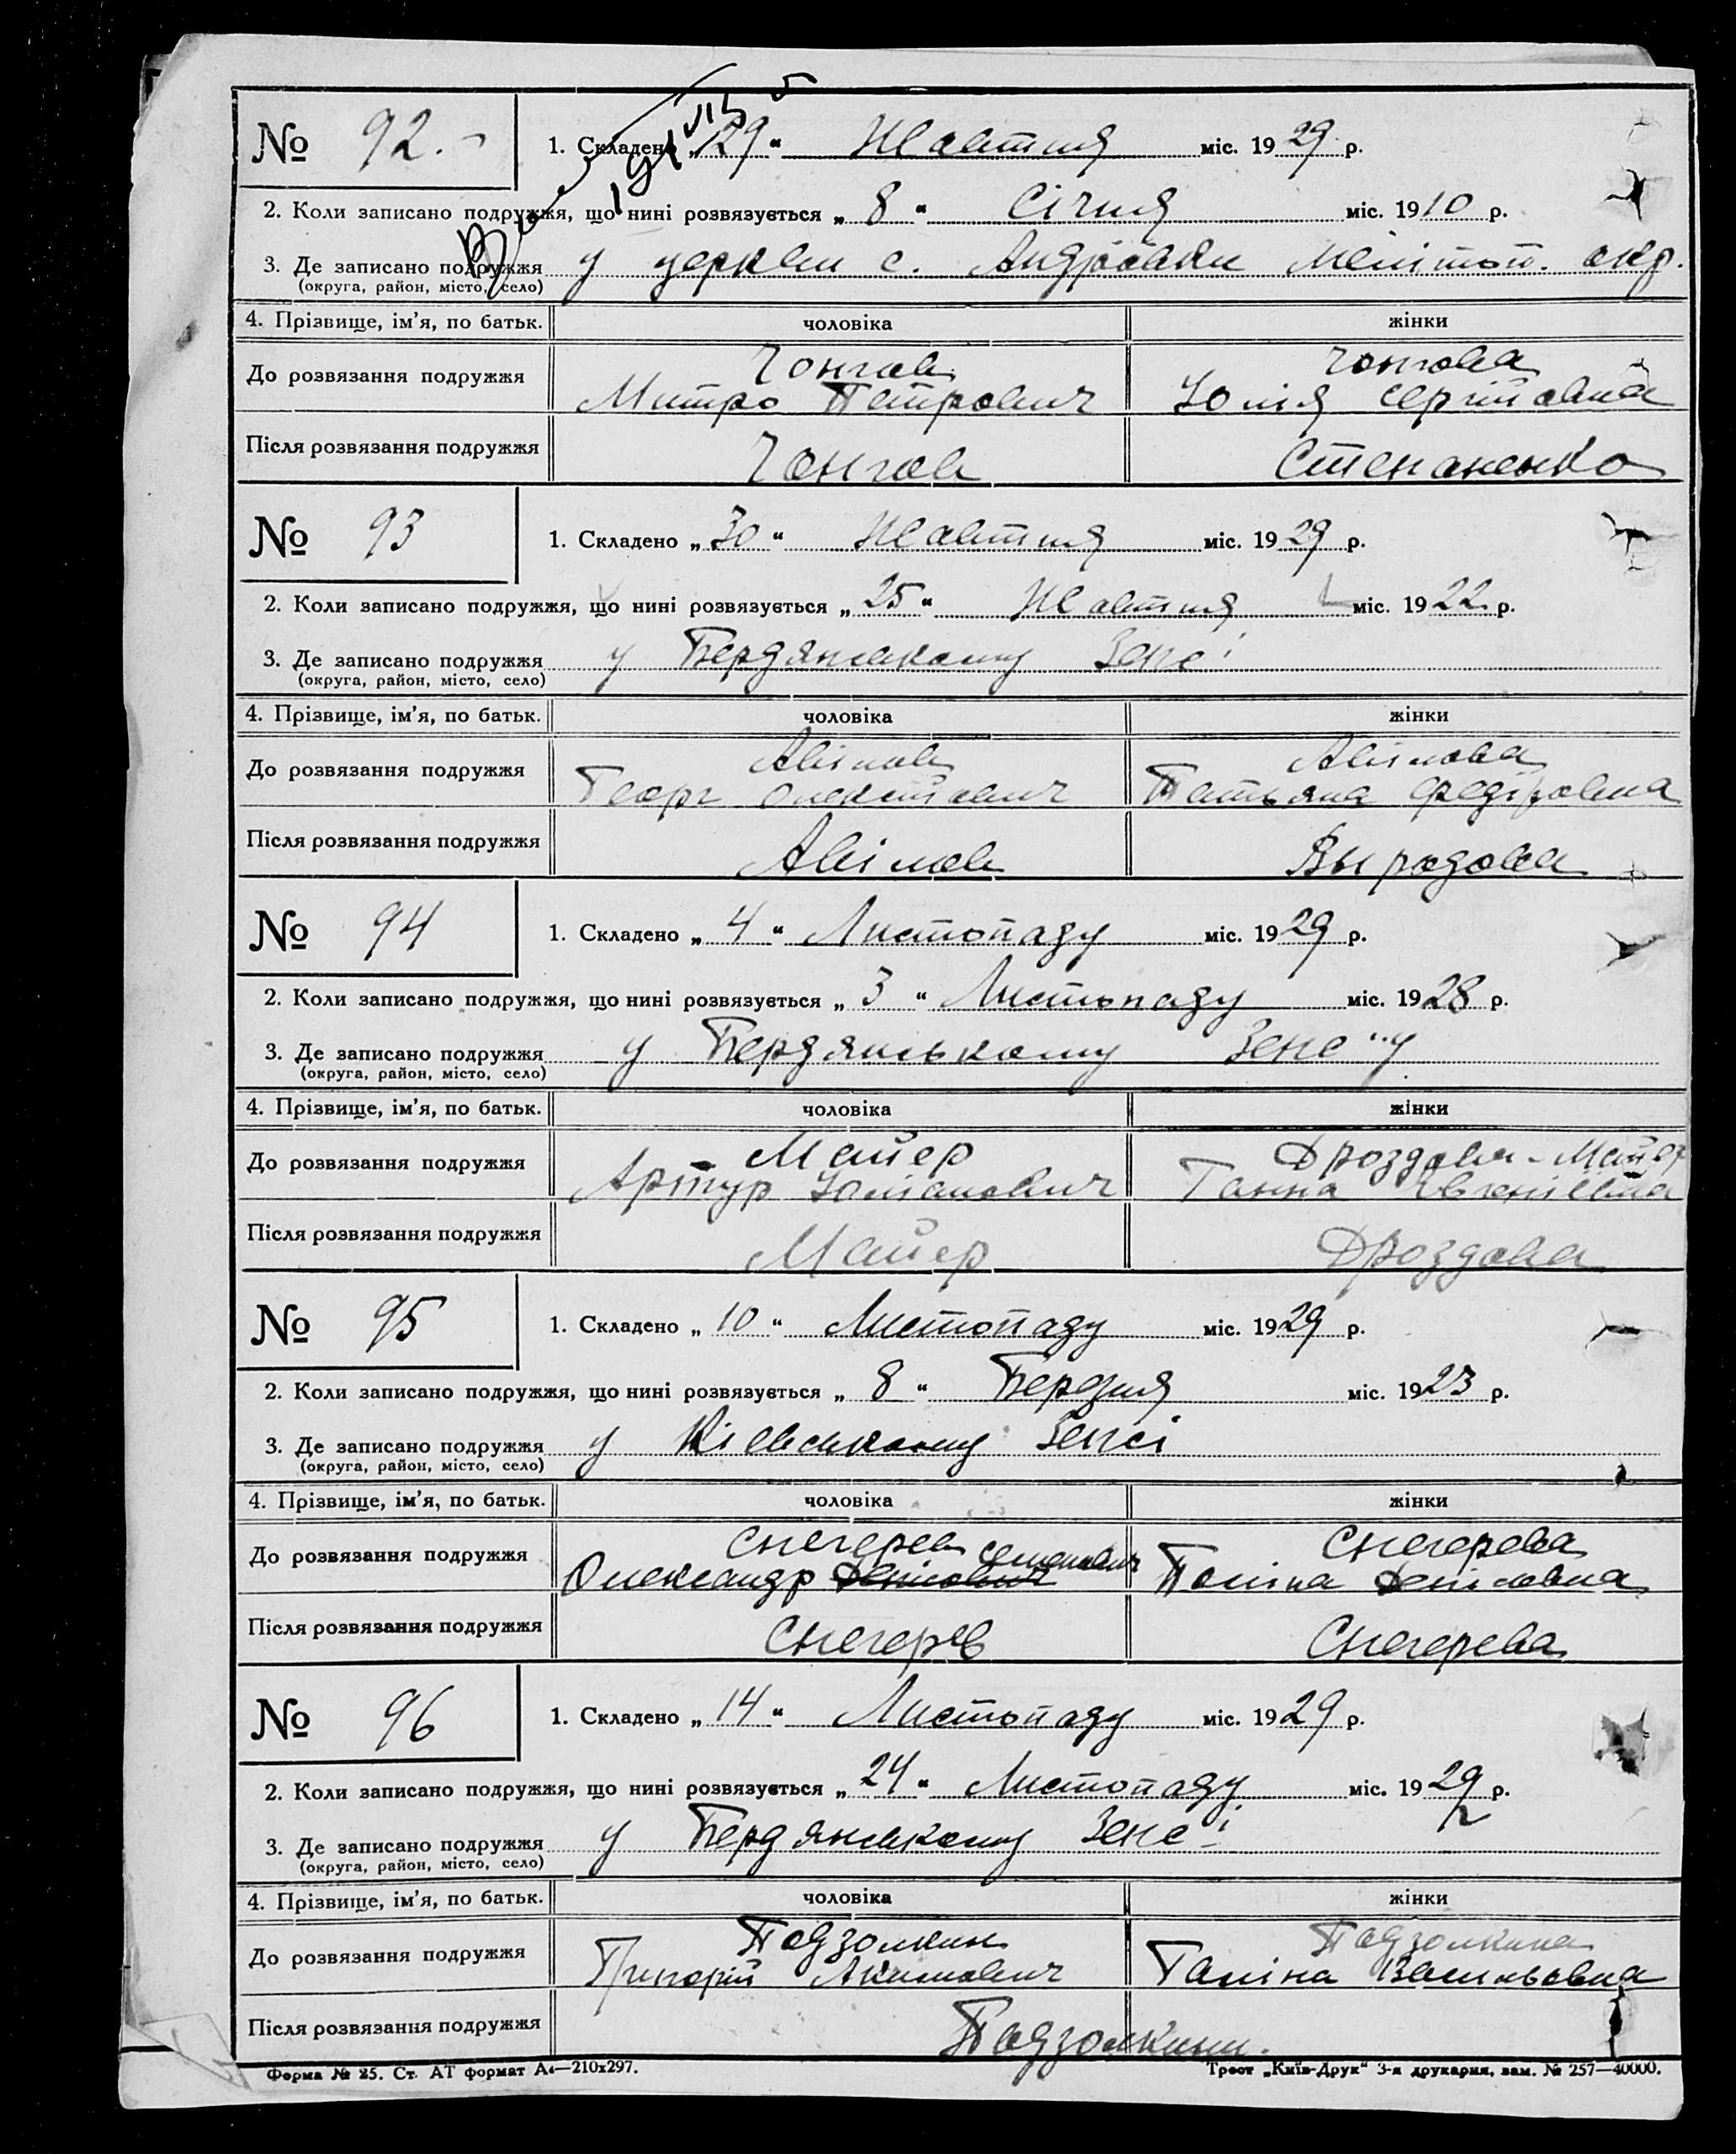 № 92. 1. Складено „29“ Жовтня міс. 1929 р.
2. Коли записано подружжя, що нині розвязується „8“ Січня міс. 1910 р.
3. Де записано подружжя у церкви с. Андровки Мелітоп. окр.
(округа, район, місто, село)
4. Прізвище, ім’я, по батьк. чоловіка жінки
Чонгов Чонгова
До розвязання подружжя Митро Петрович Юлія Сергіївна
Після розвязання подружжя Чонгов Степаненко
№ 93 1. Складено „30“ Жовтня міс. 1929 р.
2. Коли записано подружжя, що нині розвязується „25“ Жовтня міс. 1922 р.
3. Де записано подружжя у Бердянському Загсі
(округа, район, місто, село)
4. Прізвище, ім’я, по батьк. чоловіка жінки
Авілов Авілова
До розвязання подружжя Георг Олексійович Татьяна Федіровна
Після розвязання подружжя Авілов Выродова
№ 94 1. Складено „4“ Листопаду міс. 1929 р.
2. Коли записано подружжя, що нині розвязується „3“ Листопаду міс. 1928 р.
3. Де записано подружжя у Бердянському
(округа, район, місто, село)
4. Прізвище, ім’я, по батьк. чоловіка жінки
Майер Дроздова-Майер
До розвязання подружжя Артур Юліанович Ганна Євгеніївна
Після розвязання подружжя Майер Дроздова
№ 95 1. Складено „10“ Листопаду міс. 1929 р.
2. Коли записано подружжя, що нині розвязується „8“ Березня міс. 1923 р.
3. Де записано подружжя у Кіевському Загсі
(округа, район, місто, село)
4. Прізвище, ім’я, по батьк. чоловіка жінки
Снегерев Снегерева
До розвязання подружжя Олександр Денисович Семенович Поліна Денісовна
Після розвязання подружжя Снегерев Снегерева
№ 96 1. Складено „14“ Листопаду міс. 1929 р.
2. Коли записано подружжя, що нині розвязується „24“ Листопаду міс. 1929 р.
3. Де записано подружжя у Бердянському Загсі
(округа, район, місто, село)
4. Прізвище, ім’я, по батьк. чоловіка жінки
Подзолкин Подзолкина
До розвязання подружжя Григорій Акимович Галіна Васильовна
Після розвязання подружжя Подзолкины.
Форма № 25. Ст. АТ формат А4—210х297. Трест „Київ-Друк“ 3-я друкарня, зам. № 257—40000.